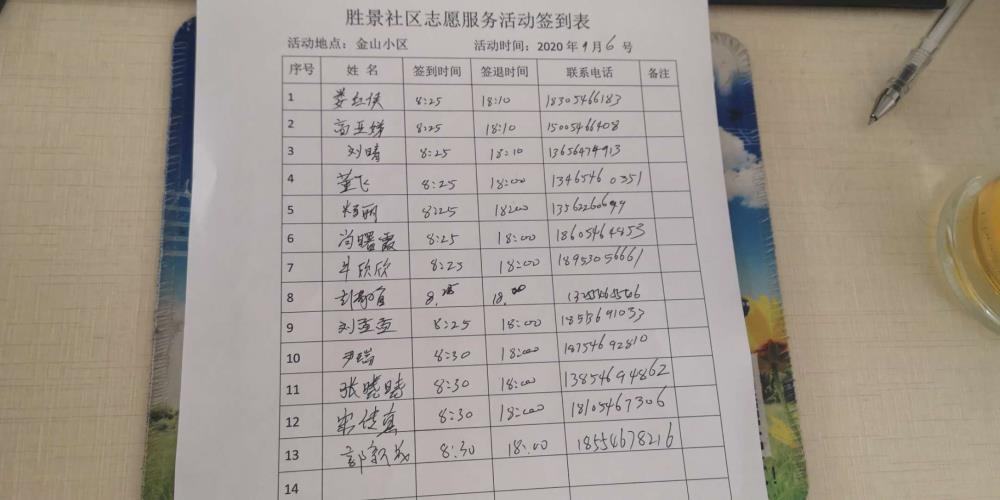 胜景社区志愿服务活动签到表
活动地点：金山小区 活动时间：2020年9月6号
序号 姓名 签到时间 签退时间 联系电话 备注
1 娄红侠 8:25 18:10 18305466183
2 高亚娣 8:25 18:10 15005466408
3 刘晴 8:25 18:10 13656474913
4 董飞 8:25 18:00 13465460351
5 8:25 18:00
6 冯曙霞 8:25 18:00 18605464853
7 牛欣欣 8:25 18:00 18953056661
8 8:25 18:00
9 刘亚亚 8:25 18:00
10 尹瑞 8:30 18:00 18754692810
11 张晓晴 8:30 18:00 13854694862
12 宋佳真 8:30 18:00 18105467306
13 8:30 18:00 18554678216
14